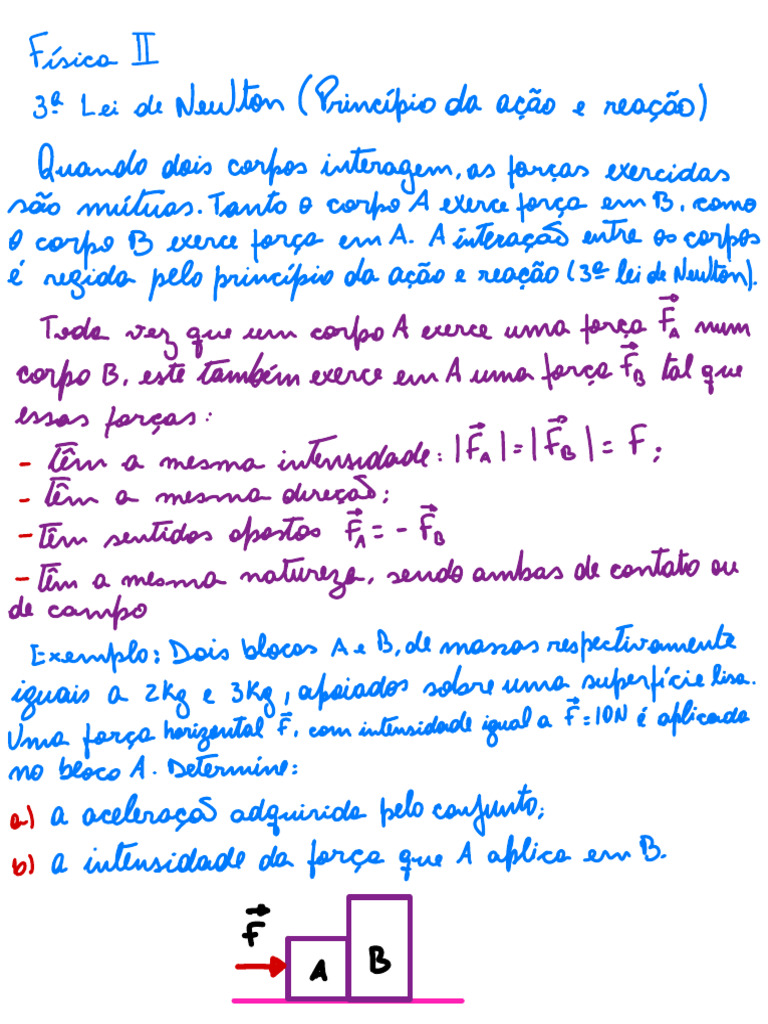 Física II
3ª Lei de Newton (Princípio da ação e reação)
Quando dois corpos interagem, as forças exercidas
são mútuas. Tanto o corpo A exerce força em B, como
o corpo B exerce força em A. A interação entre os corpos
é regida pelo princípio da ação e reação (3ª lei de Newton).
Toda vez que um corpo A exerce uma força F⃗_A num
corpo B, este também exerce em A uma força F⃗_B tal que
essas forças:
- têm a mesma intensidade: |F⃗_A| = |F⃗_B| = F;
- têm a mesma direção;
- têm sentidos opostos F⃗_A = - F⃗_B
- têm a mesma natureza, sendo ambas de contato ou
de campo
Exemplo: Dois blocos A e B, de massas respectivamente
iguais a 2Kg e 3Kg, apoiados sobre uma superfície lisa.
Uma força horizontal F⃗, com intensidade igual a F⃗ = 10N é aplicada
no bloco A. Determine:
a) a aceleração adquirida pelo conjunto;
b) a intensidade da força que A aplica em B.
F⃗
A B